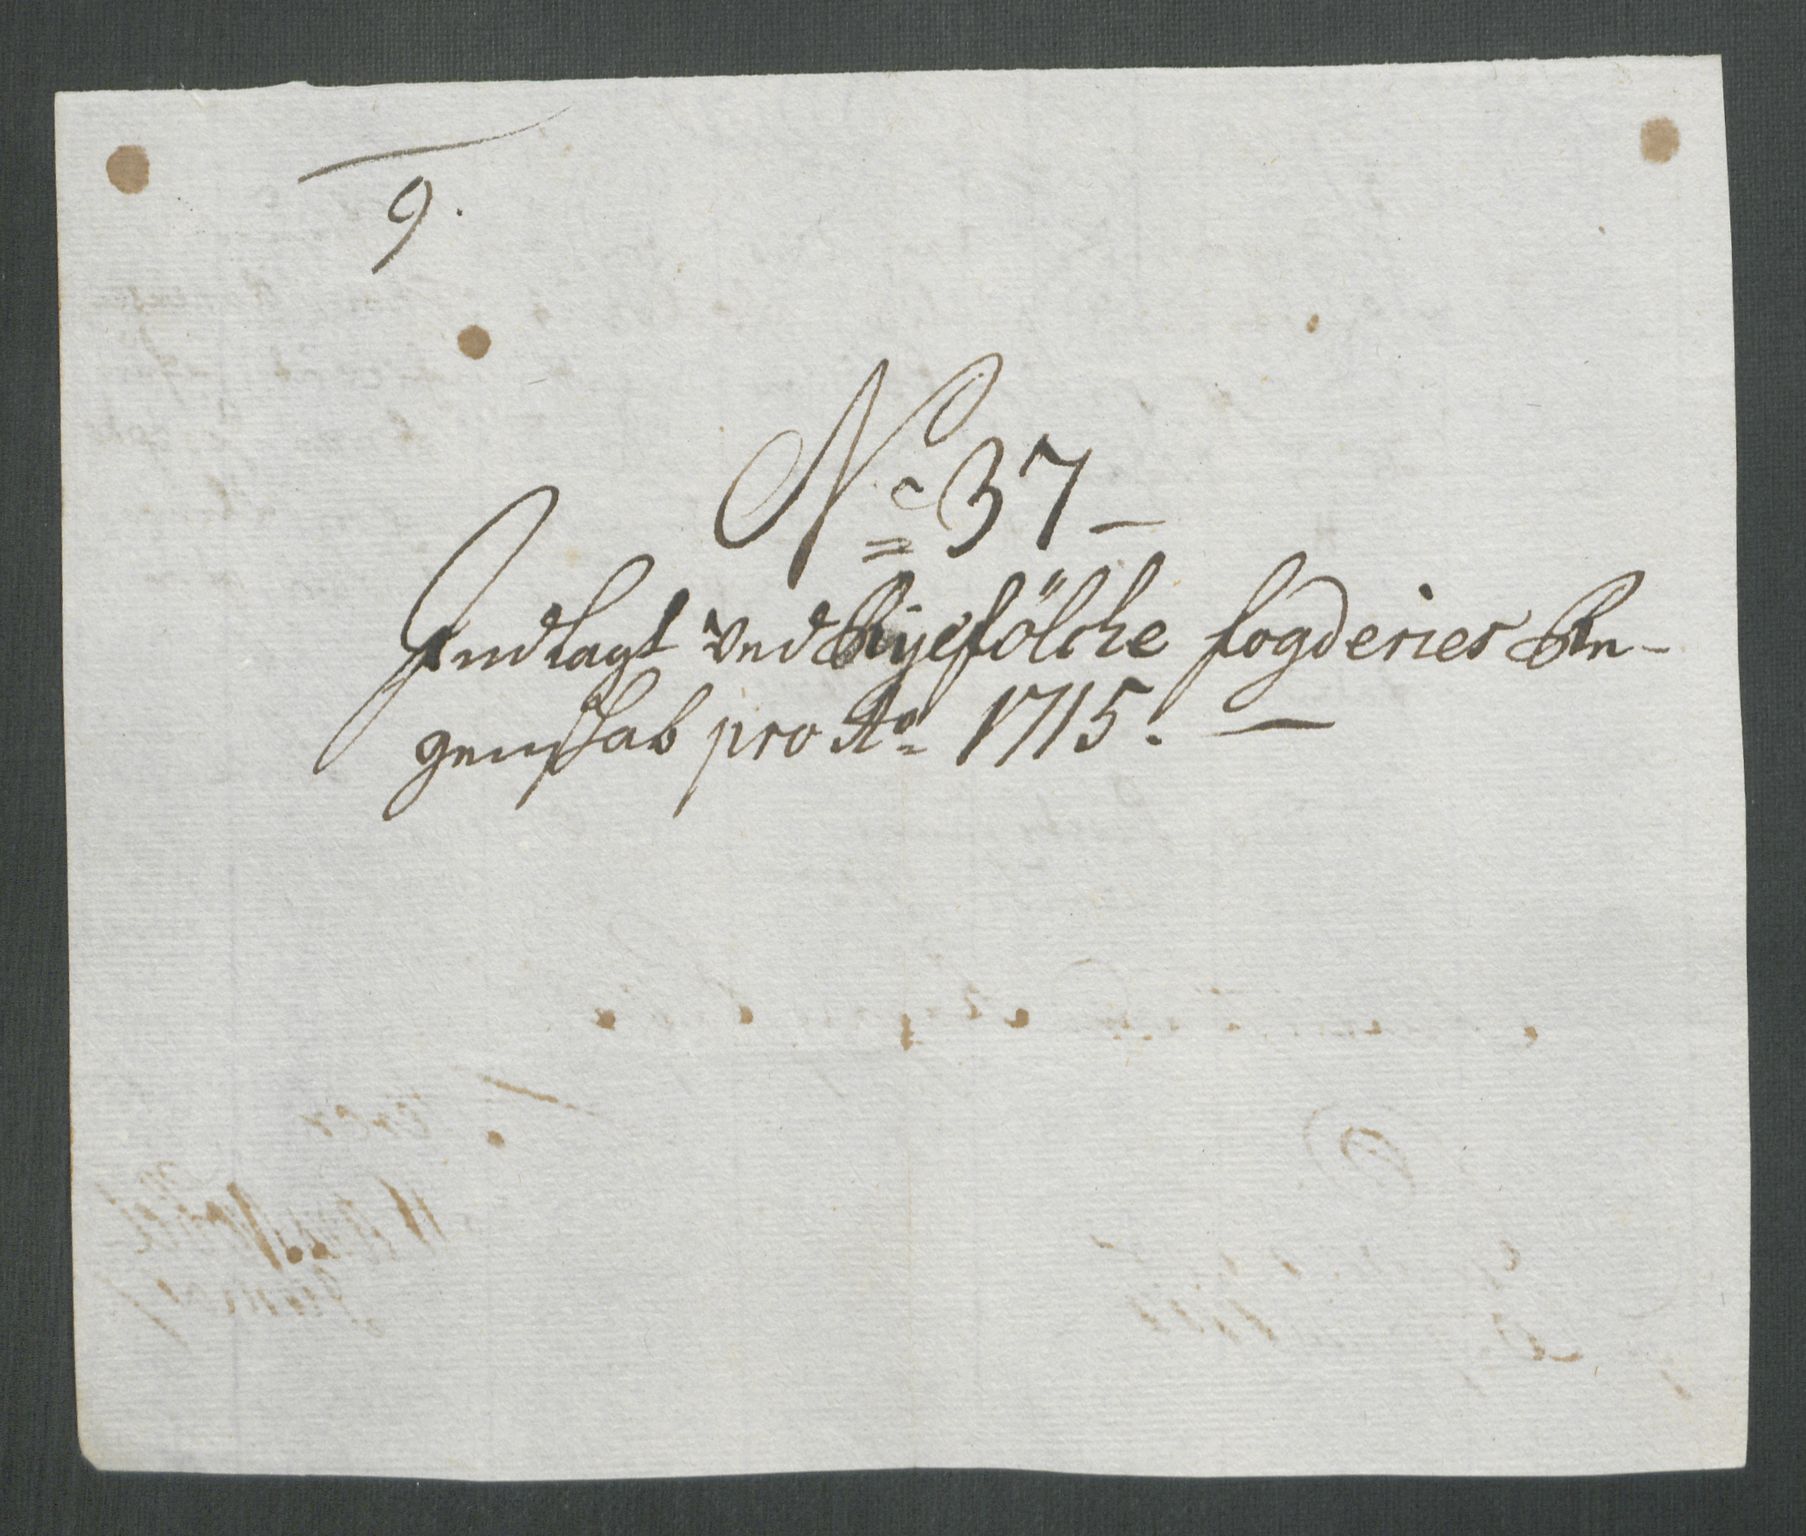 9.
No 37 –
Indlagt ved Ryefölche fogderies Re-
genskab pro Ao 1715. –